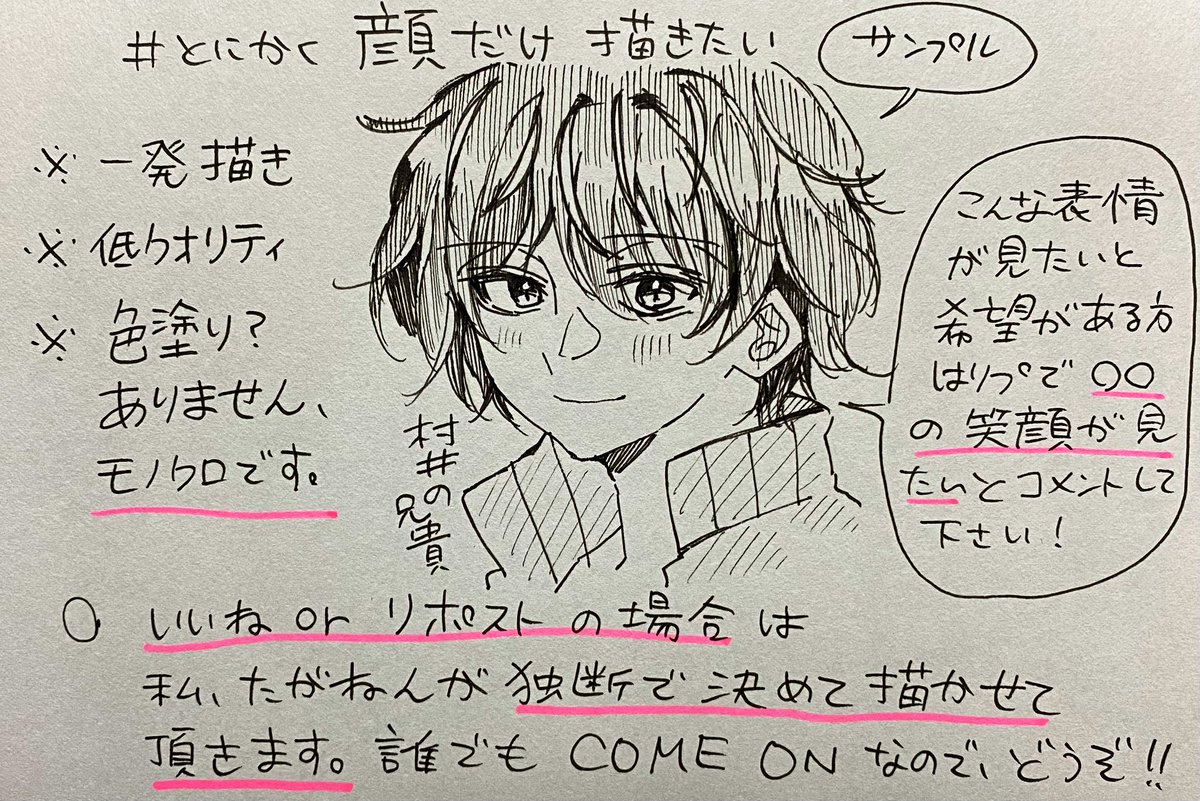 #とにかく顔だけ描きたい
サンプル
※一発描き
※低クオリティ
※色塗り?
ありません、
モノクロです。
村井の兄貴
こんな表情
が見たいと
希望がある方
はリプで〇〇
の笑顔が見
たいとコメントして
下さい!
○いいねorリポストの場合は
私、たがねんが独断で決めて描かせて
頂きます。誰でもCOME ONなので、どうぞ!!